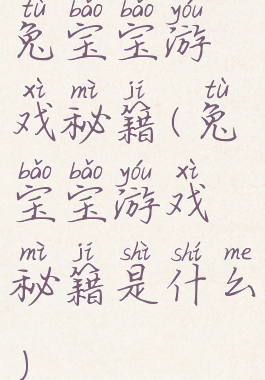 tù bǎo bǎo yóu
兔宝宝游
xì mì jí tù
戏秘籍(兔
bǎo bǎo yóu xì
宝宝游戏
mì jí shì shí me
秘籍是什么
)